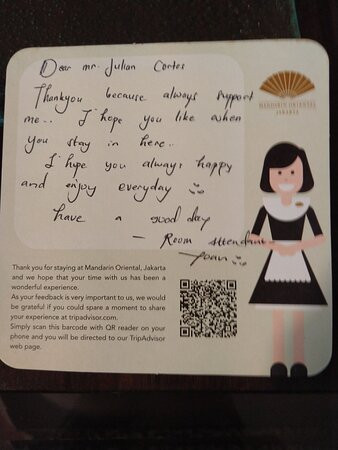 Dear mr. Julian Cortes
Thankyou because always support
me.. I hope you like when
you stay in here..
I hope you always happy
and enjoy everyday
have a good day
- Room attendant -
MANDARIN ORIENTAL
JAKARTA
Thank you for staying at Mandarin Oriental, Jakarta
and we hope that your time with us has been a
wonderful experience.
As your feedback is very important to us, we would
be grateful if you could spare a moment to share
your experience at tripadvisor.com.
Simply scan this barcode with QR reader on your
phone and you will be directed to our TripAdvisor
web page.